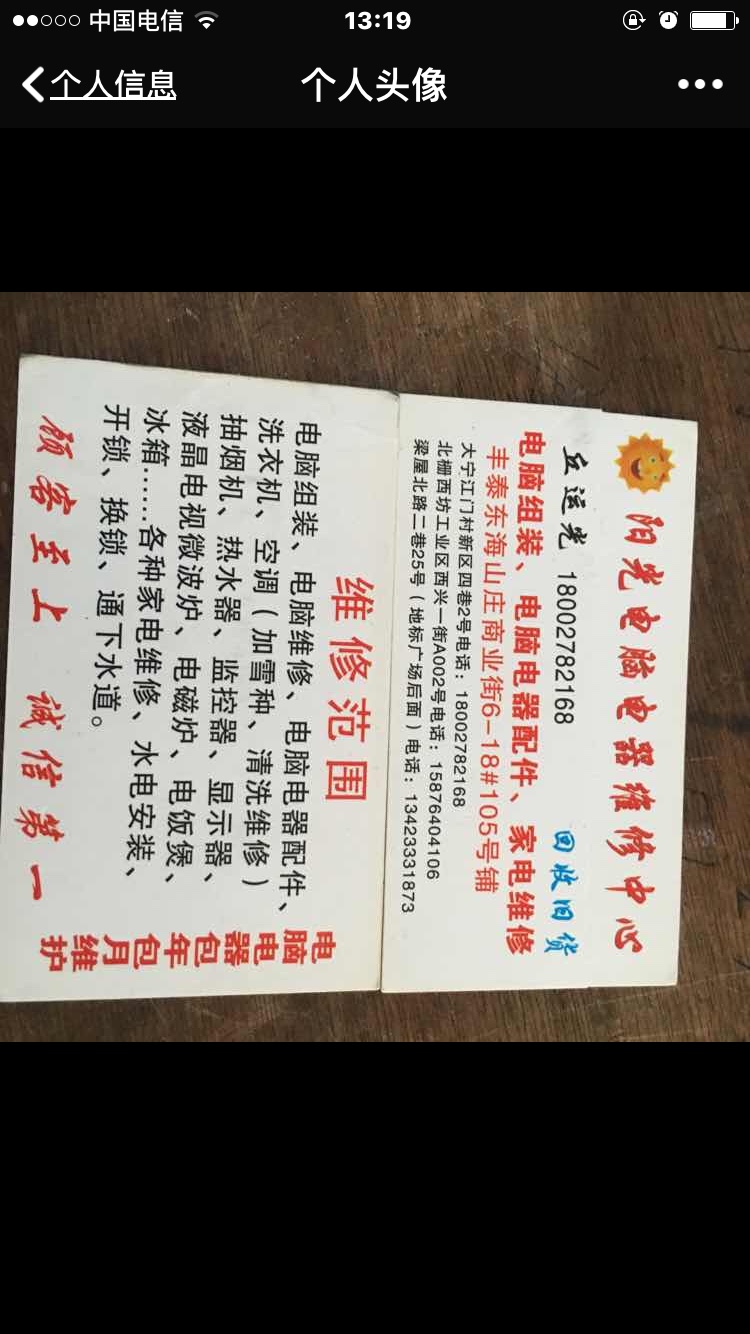 中国电信
13:19
个人信息
个人头像
阳光电脑电器维修中心
丘运光 18002782168 回收旧货
电脑组装、电脑电器配件、家电维修
丰泰东海山庄商业街6-18#105号铺
大宁江门村新区四巷2号电话：18002782168
北栅西坊工业区西兴一街A002号电话：15876404106
梁屋北路二巷25号（地标广场后面）电话：13423331873
维修范围
电脑组装、电脑维修、电脑电器配件、
洗衣机、空调（加雪种、清洗维修）
抽烟机、热水器、监控器、显示器、
液晶电视微波炉、电磁炉、电饭煲、
冰箱......各种家电维修、水电安装、
开锁、换锁、通下水道。
顾客至上 诚信第一
电脑
电器
包年
包月
维护